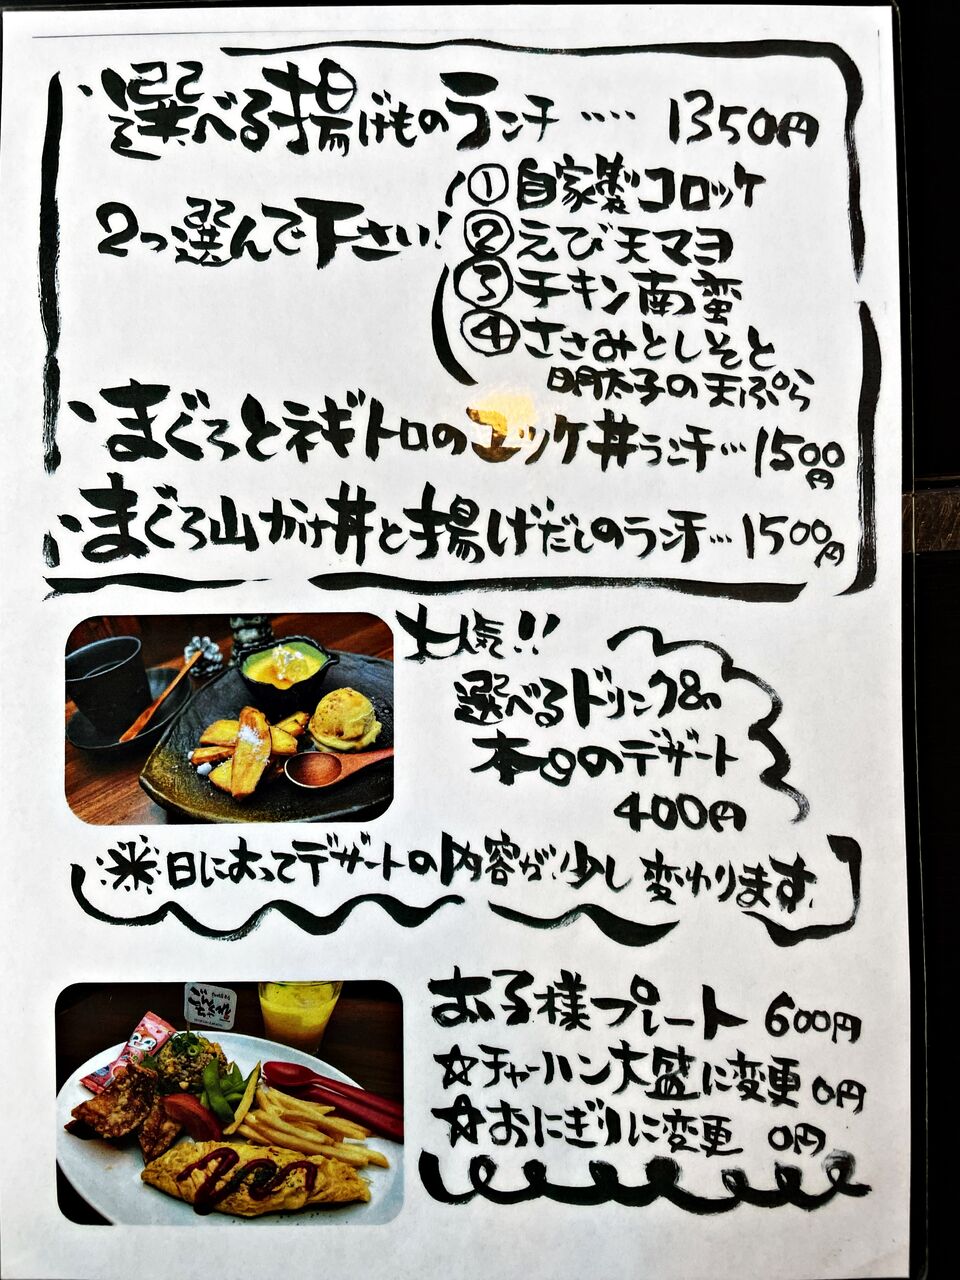 選べる揚げものランチ‥‥ 1350円
2つ選んで下さい!
①自家製コロッケ
②えび天マヨ
③チキン南蛮
④ささみとしそと
明太子の天ぷら
まぐろとネギトロのユッケ丼ランチ…1500円
まぐろ山かけ丼と揚げだしのランチ…1500円
大人気!!
選べるドリンク&
本日のデザート
400円
※日によってデザートの内容が少し変わります
お子様プレート 600円
☆チャーハン大盛に変更 0円
☆おにぎりに変更 0円